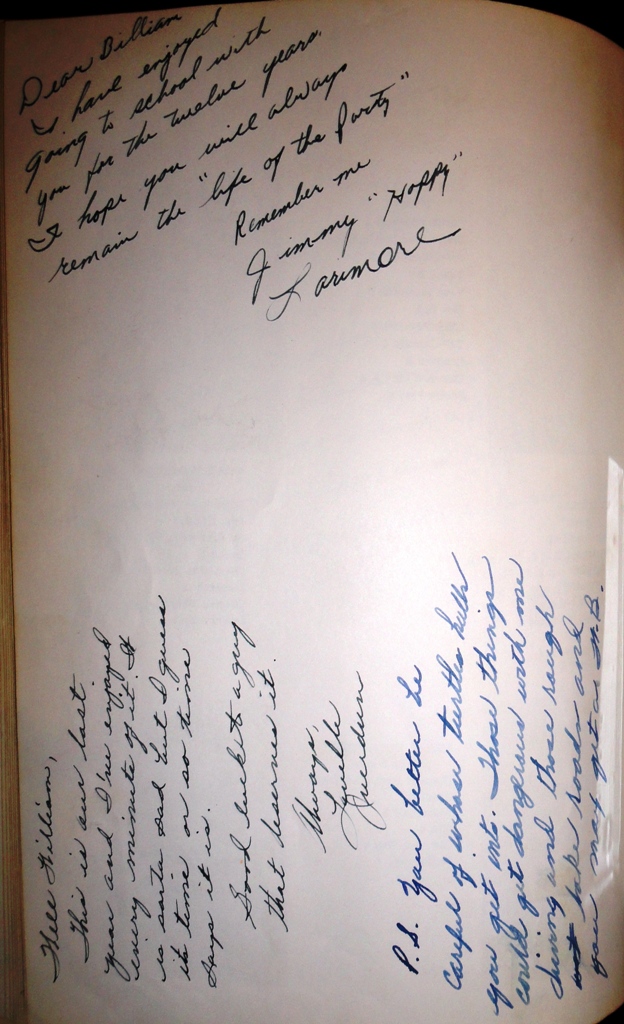 Dear Billiam
I have enjoyed
going to school with
you for the twelve years.
I hope you will always
remain the "life of the Party"
Remember me
Jimmy "Hoppy"
Larimore
William,
This is our last
year and I've enjoyed
every minute of it. It
is sorta sad but I guess
its time or so time
says it is.
Good luck to a guy
that deserves it.
Always,
Louella
P.S. You better be
careful of whose turtle hulls
you get into. Those things
could get dangerous with me
driving and those rough
lake roads and
you may get as H.B.